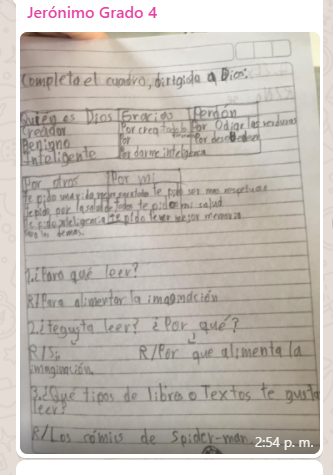 Jerónimo Grado 4
Completa el cuadro, dirigida a Dios:
Quién es Dios Gracias Perdón
Creador Por crea todo Por Odiar las verduras
Benigno Por Por desobedecer
Inteligente Por darme inteligencia
Por otros Por mi
Te pido una vida mejor para todos Te pido ser mas respetuoso
Te pido por la salud de todos te pido mi salud
Te pido inteligencia te pido tener mejor memoria
Para los demas.
1. ¿Para qué leer?
R/Para alimentar la imaginación
2. ¿te gusta leer? ¿Por qué?
R/Si R/Por que alimenta la
imaginación.
3. ¿Qué tipos de libros o Textos te gusta
leer?
R/Los cómics de Spider-man.
2:54 p. m.